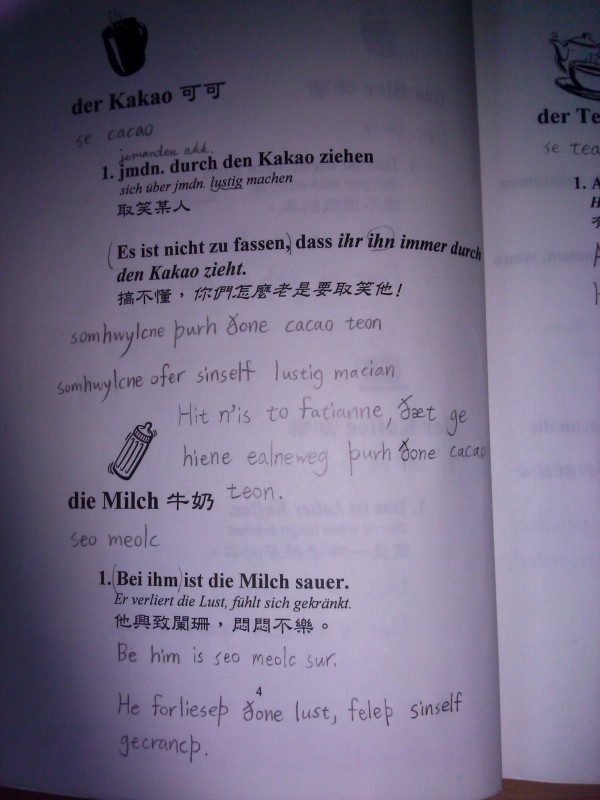 der Kakao 可可
se cacao
jemanden akk.
1. jmdn. durch den Kakao ziehen
sich über jmdn. lustig machen
取笑某人
(Es ist nicht zu fassen,) dass ihr ihn immer durch
den Kakao zieht.
搞不懂，你們怎麼老是要取笑他！
somhwylcne þurh ðone cacao teon
somhwylcne ofer sinself lustig macian
Hit n'is to fatianne, ðæt ge
hiene ealneweg þurh ðone cacao
teon.
die Milch 牛奶
seo meolc
1. (Bei ihm) ist die Milch sauer.
Er verliert die Lust, fühlt sich gekränkt.
他興致闌珊，悶悶不樂。
Be him is seo meolc sur.
He forlieseþ ðone lust, feleþ sinself
gecrancþ.
4
der Te
se tea
1. A
H